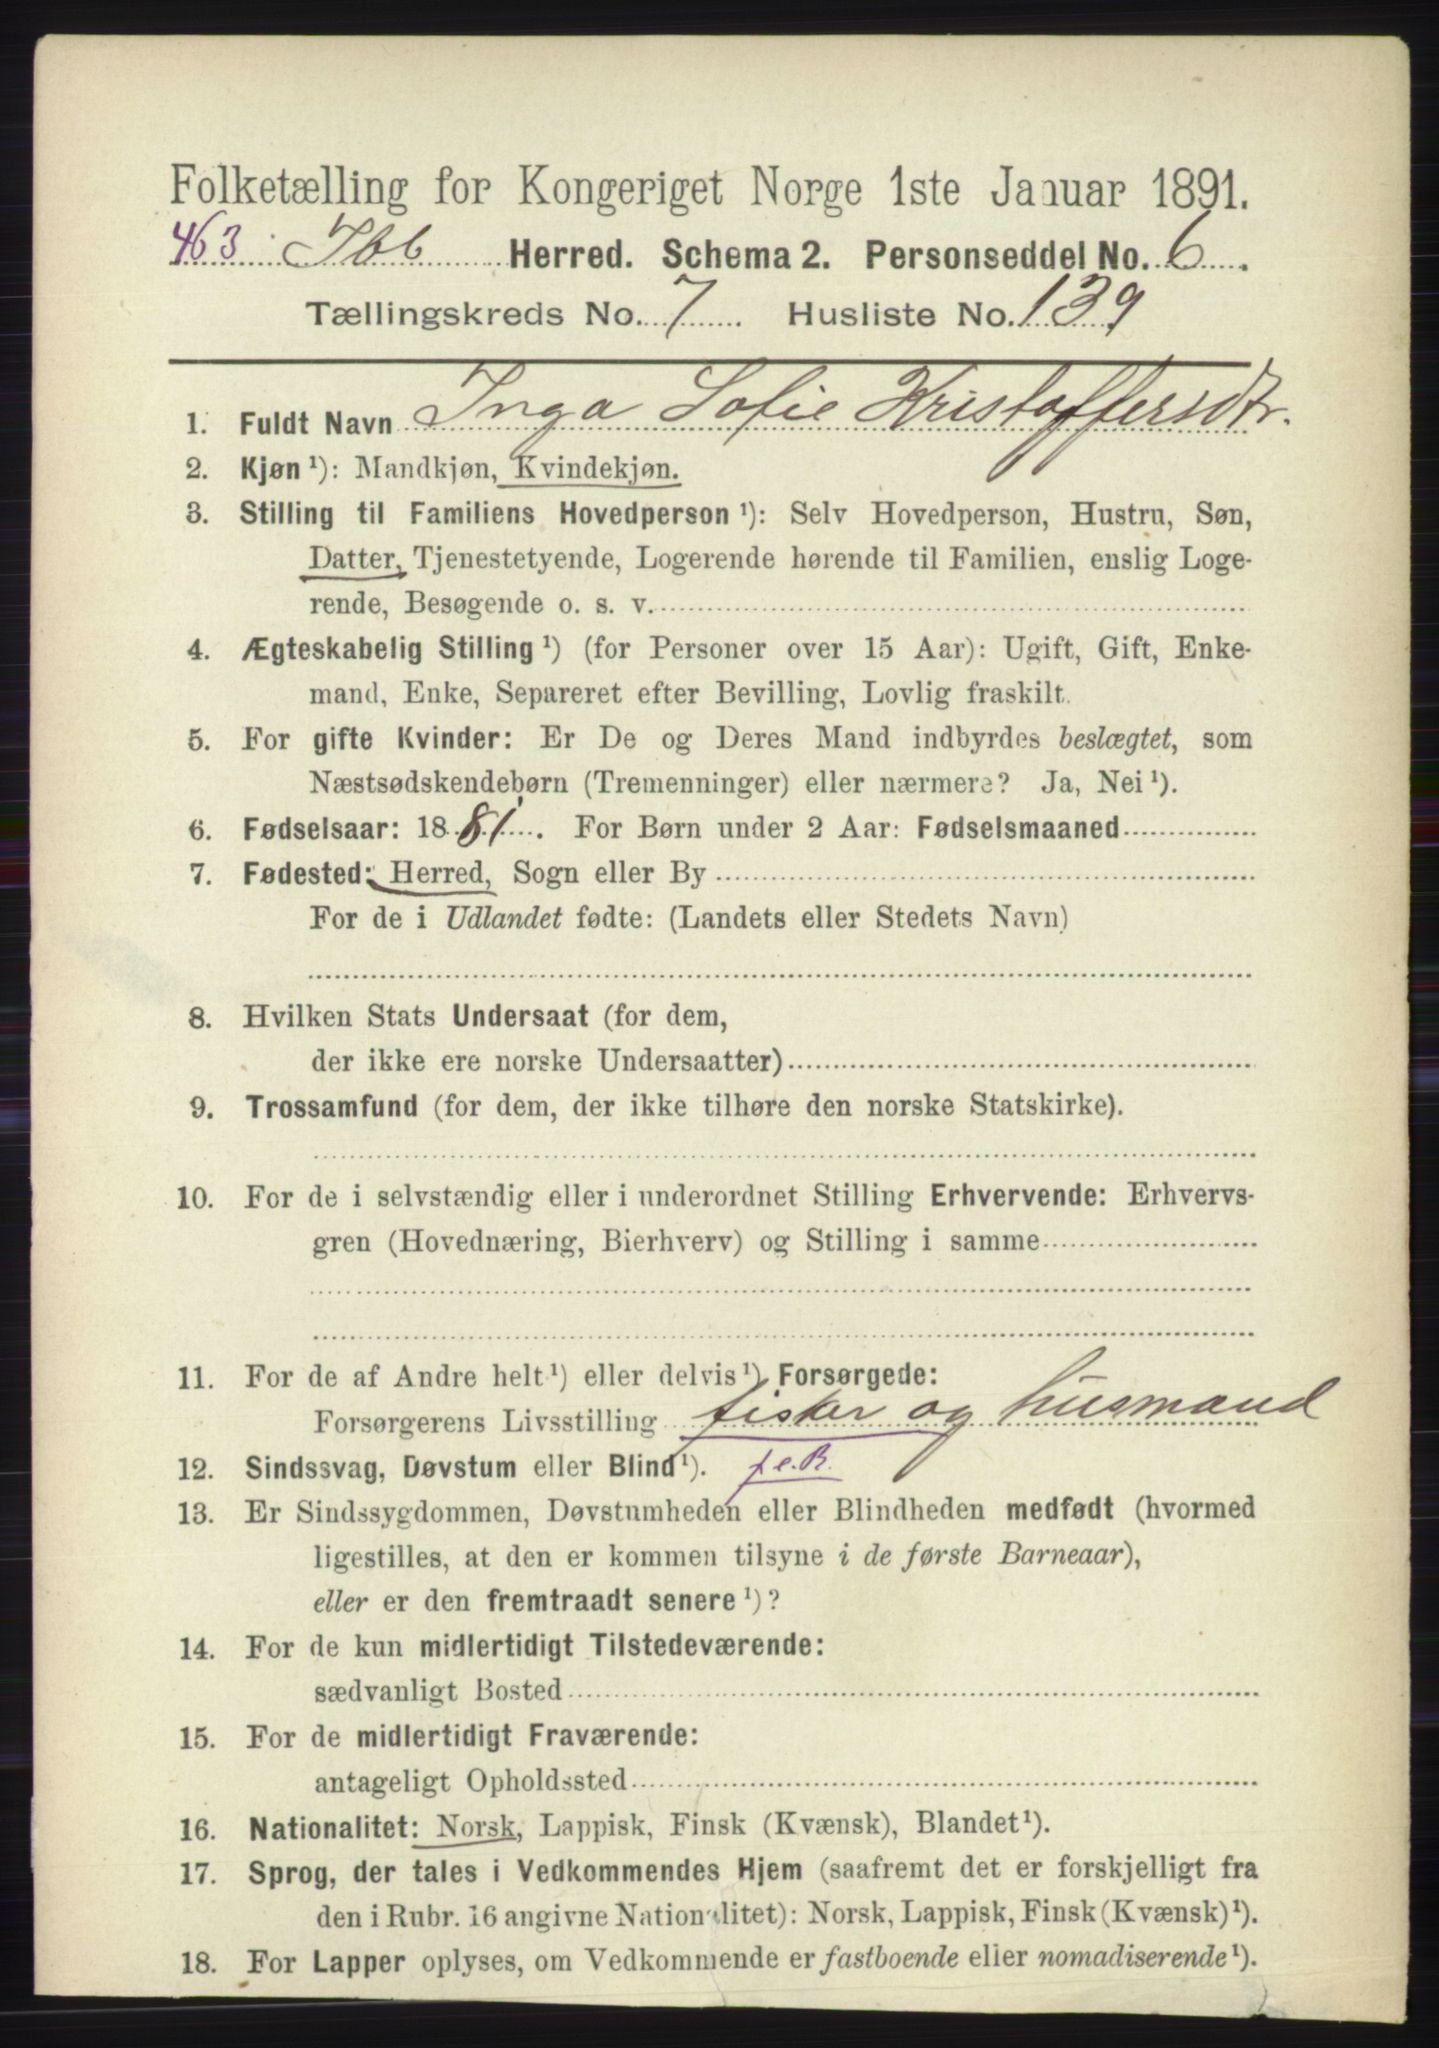 Folketælling for Kongeriget Norge 1ste Januar 1891.
463 Ibb Herred. Schema 2. Personseddel No. 6.
Tællingskreds No. 7 Husliste No. 139
1. Fuldt Navn Inga Sofie Kristoffersdtr.
2. Kjøn ¹): Mandkjøn, Kvindekjøn.
3. Stilling til Familiens Hovedperson ¹): Selv Hovedperson, Hustru, Søn,
Datter, Tjenestetyende, Logerende hørende til Familien, enslig Loge-
rende, Besøgende o. s. v.
4. Ægteskabelig Stilling ¹) (for Personer over 15 Aar): Ugift, Gift, Enke-
mand, Enke, Separeret efter Bevilling, Lovlig fraskilt.
5. For gifte Kvinder: Er De og Deres Mand indbyrdes beslægtet, som
Næstsødskendebørn (Tremenninger) eller nærmere? Ja, Nei ¹).
6. Fødselsaar: 1881. For Børn under 2 Aar: Fødselsmaaned
7. Fødested: Herred, Sogn eller By
For de i Udlandet fødte: (Landets eller Stedets Navn)
8. Hvilken Stats Undersaat (for dem,
der ikke ere norske Undersaatter)
9. Trossamfund (for dem, der ikke tilhøre den norske Statskirke).
10. For de i selvstændig eller i underordnet Stilling Erhvervende: Erhvervs-
gren (Hovednæring, Bierhverv) og Stilling i samme
11. For de af Andre helt ¹) eller delvis ¹) Forsørgede:
Forsørgerens Livsstilling fisker og husmand
12. Sindssvag, Døvstum eller Blind ¹). f.e.R.
13. Er Sindssygdommen, Døvstumheden eller Blindheden medfødt (hvormed
ligestilles, at den er kommen tilsyne i de første Barneaar),
eller er den fremtraadt senere ¹)?
14. For de kun midlertidigt Tilstedeværende:
sædvanligt Bosted
15. For de midlertidigt Fraværende:
antageligt Opholdssted
16. Nationalitet: Norsk, Lappisk, Finsk (Kvænsk), Blandet ¹).
17. Sprog, der tales i Vedkommendes Hjem (saafremt det er forskjelligt fra
den i Rubr. 16 angivne Nationalitet): Norsk, Lappisk, Finsk (Kvænsk) ¹).
18. For Lapper oplyses, om Vedkommende er fastboende eller nomadiserende ¹).